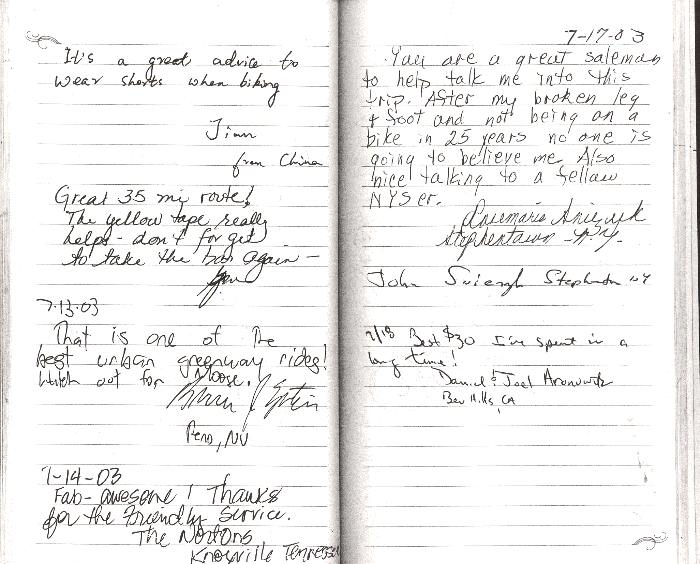 It's a great advice to
wear shorts when biking
from China
Great 35 mi route!
The yellow tape really
helps - don't forget
to take the bus again -
7-13-03
That is one of the
best urban greenway rides!
Watch out for Moose.
Reno, NV
7-14-03
Fab-awesome! Thanks
for the friendly service.
The Nortons
Knoxville Tennessee
7-17-03
You are a great saleman
to help talk me into this
trip. After my broken leg
& foot and not being on a
bike in 25 years no one is
going to believe me. Also
nice talking to a fellow
NYSer.
Rosemarie
Stephentown - N.Y.
John NY
7/18 Best $30 I've spent in a
long time!
Daniel & Joel Aronowitz
Bev Hills, CA